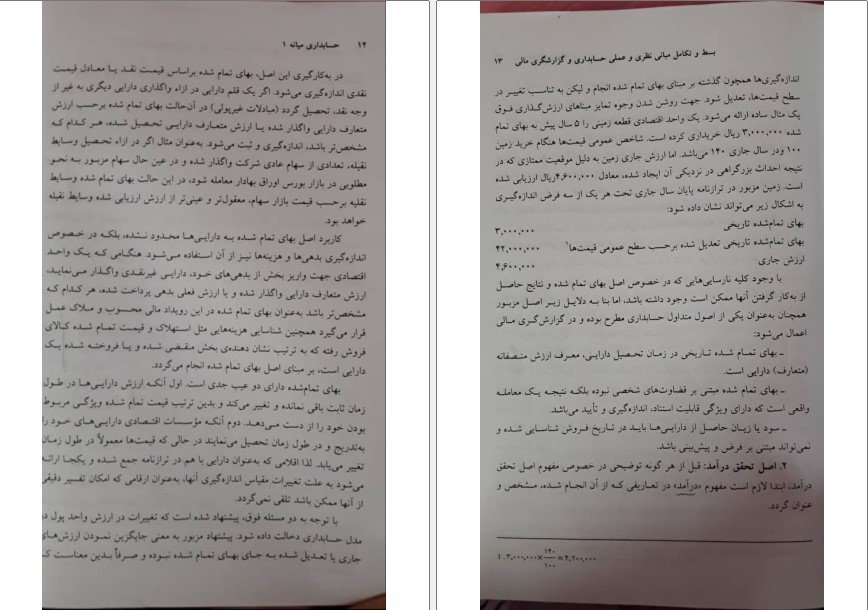 ۱۲ حسابداری میانه ۱
در به‌کارگیری این اصل، بهای تمام شده براساس قیمت نقد یا معادل قیمت
نقدی اندازه‌گیری می‌شود. اگر یک قلم دارایی در ازاء واگذاری دارایی دیگری به غیر از
وجه نقد، تحصیل گردد (مبادلات غیرپولی) در آن‌حالت بهای تمام شده برحسب ارزش
متعارف دارایی واگذار شده یا ارزش متعارف دارایی تحصیل شده، هر کدام که
مشخص‌تر باشد، اندازه‌گیری و ثبت می‌شود. به‌عنوان مثال اگر در ازاء تحصیل وسایط
نقیله، تعدادی از سهام عادی شرکت واگذار شده و در عین حال سهام مزبور به نحو
مطلوبی در بازار بورس اوراق بهادار معامله شود، در این حالت بهای تمام شده وسایط
نقلیه برحسب قیمت بازار سهام، معقول‌تر و عینی‌تر از ارزش ارزیابی شده وسایط نقیله
خواهد بود.
کاربرد اصل بهای تمام شده به دارایی‌ها محدود نشده، بلکه در خصوص
اندازه‌گیری بدهی‌ها و هزینه‌ها نیز از آن استفاده می‌شود. هنگامی که یک واحد
اقتصادی جهت واریز بخش از بدهی‌های خود، دارایی غیرنقدی واگذار می‌نماید،
ارزش متعارف دارایی واگذار شده و یا ارزش فعلی بدهی پرداخت شده، هر کدام که
مشخص‌تر باشد به‌عنوان بهای تمام شده در این رویداد مالی محسوب و ملاک عمل
قرار می‌گیرد همچنین شناسایی هزینه‌هایی مثل استهلاک و قیمت تمام شده کالای
فروش رفته که به ترتیب نشان دهنده‌ی بخش منقضی شده و یا فروخته شده یک
دارایی است، بر مبنای اصل بهای تمام شده انجام می‌گردد.
بهای تمام‌شده دارای دو عیب جدی است. اول آنکه ارزش دارایی‌ها در طول
زمان ثابت باقی نمانده و تغییر می‌کند و بدین ترتیب قیمت تمام شده ویژگی مربوط
بودن خود را از دست می‌دهد. دوم آنکه مؤسسات اقتصادی دارایی‌های خود را
به‌تدریج و در طول زمان تحصیل می‌نمایند در حالی که قیمت‌ها معمولاً در طول زمان
تغییر می‌یابد. لذا اقلامی که به‌عنوان دارایی با هم در ترازنامه جمع شده و یکجا ارائه
می‌شود به علت تغییرات مقیاس اندازه‌گیری آنها، به‌عنوان ارقامی که امکان تفسیر دقیقی
از آنها ممکن باشد تلقی نمی‌گردد.
با توجه به دو مسئله فوق، پیشنهاد شده است که تغییرات در ارزش واحد پول در
مدل حسابداری دخالت داده شود. پیشنهاد مزبور به معنی جایگزین نمودن ارزش‌های
جاری یا تعدیل شده به جای بهای تمام شده نبوده و صرفاً بدین معناست که
بسط و تکامل مبانی نظری و عملی حسابداری و گزارشگری مالی ۱۳
اندازه‌گیری‌ها همچون گذشته بر مبنای بهای تمام شده انجام و لیکن به تناسب تغییر در
سطح قیمت‌ها، تعدیل شود. جهت روشن شدن وجوه تمایز مبناهای ارزش‌گذاری فوق
یک مثال ساده ارائه می‌شود. یک واحد اقتصادی قطعه زمینی را ۵ سال پیش به بهای تمام
شده ۳,۰۰۰,۰۰۰ ریال خریداری کرده است. شاخص عمومی قیمت‌ها هنگام خرید زمین
۱۰۰ ودر سال جاری ۱۴۰ می‌باشد. اما ارزش جاری زمین به دلیل موقعیت ممتازی که در
نتیجه احداث بزرگراهی در نزدیکی آن ایجاد شده، معادل ۴,۶۰۰,۰۰۰ریال ارزیابی شده
است. زمین مزبور در ترازنامه پایان سال جاری تحت هر یک از سه فرض اندازه‌گیری
به اشکال زیر می‌تواند نشان داده شود:
بهای تمام‌شده تاریخی ۳,۰۰۰,۰۰۰
بهای تمام‌شده تاریخی تعدیل شده برحسب سطح عمومی قیمت‌ها۱ ۴۲,۰۰۰,۰۰۰
ارزش جاری ۴,۶۰۰,۰۰۰
با وجود کلیه نارسایی‌هایی که در خصوص اصل بهای تمام شده و نتایج حاصل
از به‌کار گرفتن آنها ممکن است وجود داشته باشد، اما بنا به دلایل زیر اصل مزبور
همچنان به‌عنوان یکی از اصول متداول حسابداری مطرح بوده و در گزارش‌گری مالی
اعمال می‌شود:
ـ بهای تمام شده تاریخی در زمان تحصیل دارایی، معرف ارزش منصفانه
(متعارف) دارایی است.
ـ بهای تمام شده مبتنی بر قضاوت‌های شخصی نبوده بلکه نتیجه یک معامله
واقعی است که دارای ویژگی قابلیت استناد، اندازه‌گیری و تأیید می‌باشد.
ـ سود یا زیان حاصل از دارایی‌ها باید در تاریخ فروش شناسایی شده و
نمی‌تواند مبتنی بر فرض و پیش‌بینی باشد.
۲. اصل تحقق درآمد: قبل از هر گونه توضیحی در خصوص مفهوم اصل تحقق
درآمد، ابتدا لازم است مفهوم «درآمد» در تعاریفی که از آن انجام شده، مشخص و
عنوان گردد.
۱. ۳,۰۰۰,۰۰۰ × ۱۴۰/۱۰۰ = ۴,۲۰۰,۰۰۰